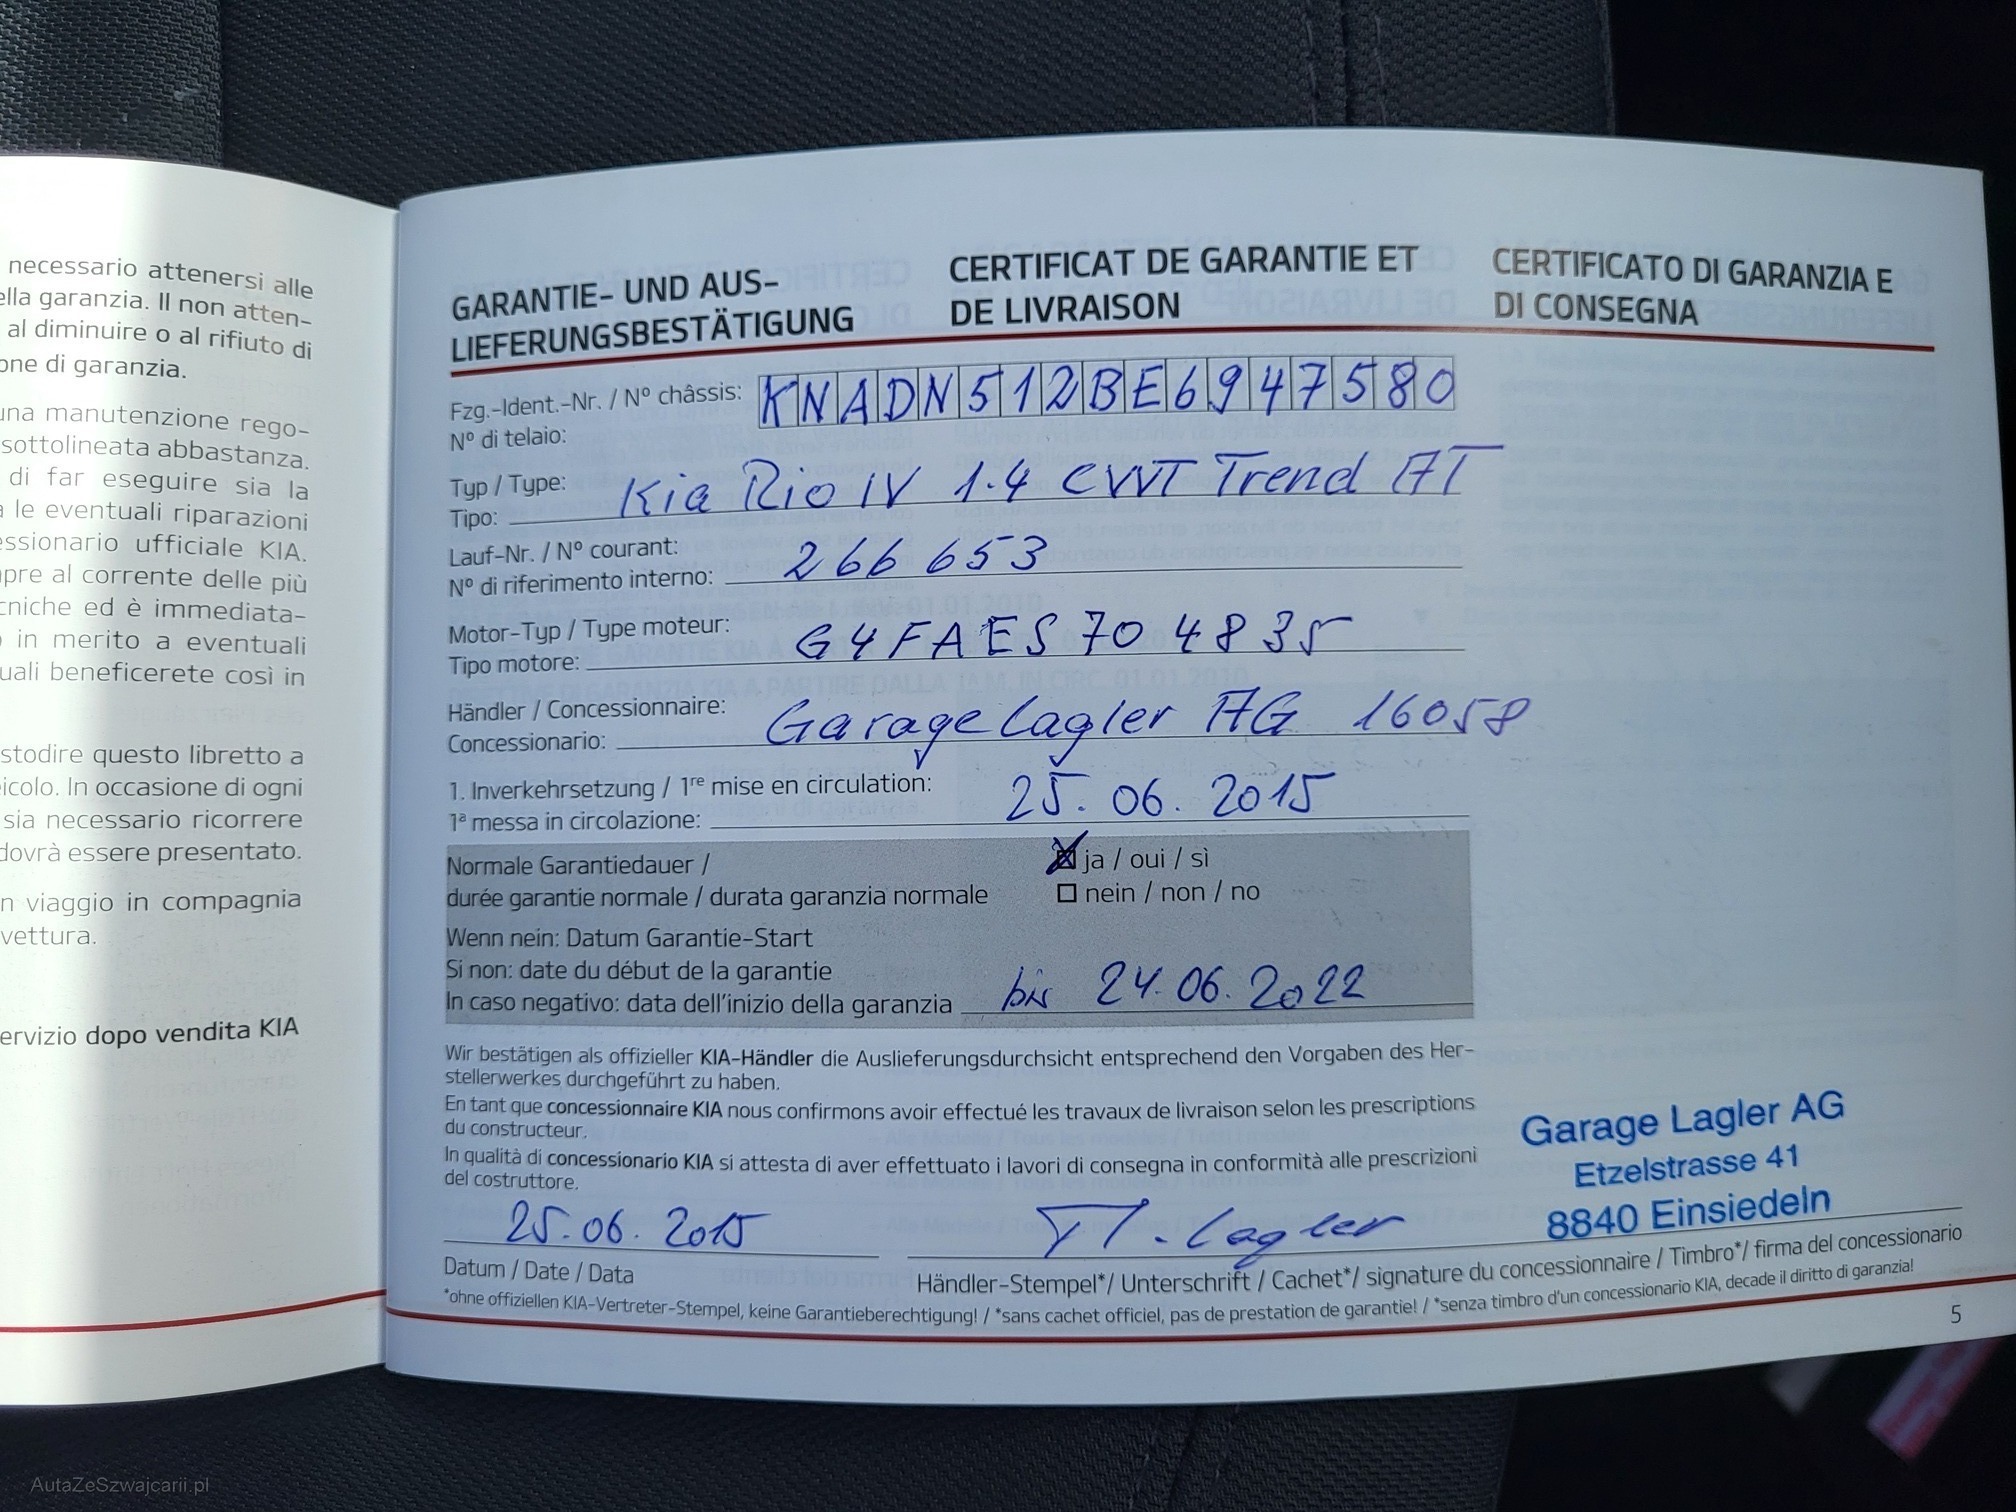 necessario attenersi alle
ella garanzia. Il non atten-
al diminuire o al rifiuto di
one di garanzia.
una manutenzione rego-
sottolineata abbastanza.
di far eseguire sia la
a le eventuali riparazioni
essionario ufficiale KIA.
pre al corrente delle più
cniche ed è immediata-
o in merito a eventuali
uali beneficerete così in
stodire questo libretto a
icolo. In occasione di ogni
sia necessario ricorrere
dovrà essere presentato.
n viaggio in compagnia
vettura.
ervizio dopo vendita KIA
GARANTIE- UND AUS-
LIEFERUNGSBESTÄTIGUNG
CERTIFICAT DE GARANTIE ET
DE LIVRAISON
CERTIFICATO DI GARANZIA E
DI CONSEGNA
Fzg.-Ident.-Nr. / Nº châssis: KNADN512BE6947580
Nº di telaio:
Typ / Type: Kia Rio IV 1.4 CVVT Trend AT
Tipo:
Lauf-Nr. / Nº courant: 266 653
Nº di riferimento interno:
Motor-Typ / Type moteur: G4FAES704835
Tipo motore:
Händler / Concessionnaire: Garage Lagler AG 16058
Concessionario:
1. Inverkehrsetzung / 1re mise en circulation: 25.06.2015
1ª messa in circolazione:
Normale Garantiedauer / ja / oui / sì
durée garantie normale / durata garanzia normale nein / non / no
Wenn nein: Datum Garantie-Start
Si non: date du début de la garantie
In caso negativo: data dell'inizio della garanzia bis 24.06.2022
Wir bestätigen als offizieller KIA-Händler die Auslieferungsdurchsicht entsprechend den Vorgaben des Her-
stellerwerkes durchgeführt zu haben.
En tant que concessionnaire KIA nous confirmons avoir effectué les travaux de livraison selon les prescriptions
du constructeur.
In qualità di concessionario KIA si attesta di aver effettuato i lavori di consegna in conformità alle prescrizioni
del costruttore.
Garage Lagler AG
Etzelstrasse 41
8840 Einsiedeln
25.06.2015 Lagler
Datum / Date / Data
Händler-Stempel*/ Unterschrift / Cachet*/ signature du concessionnaire / Timbro*/ firma del concessionario
*ohne offiziellen KIA-Vertreter-Stempel, keine Garantieberechtigung! / *sans cachet officiel, pas de prestation de garantie! / *senza timbro d'un concessionario KIA, decade il diritto di garanzia!
5
AutaZeSzwajcarii.pl